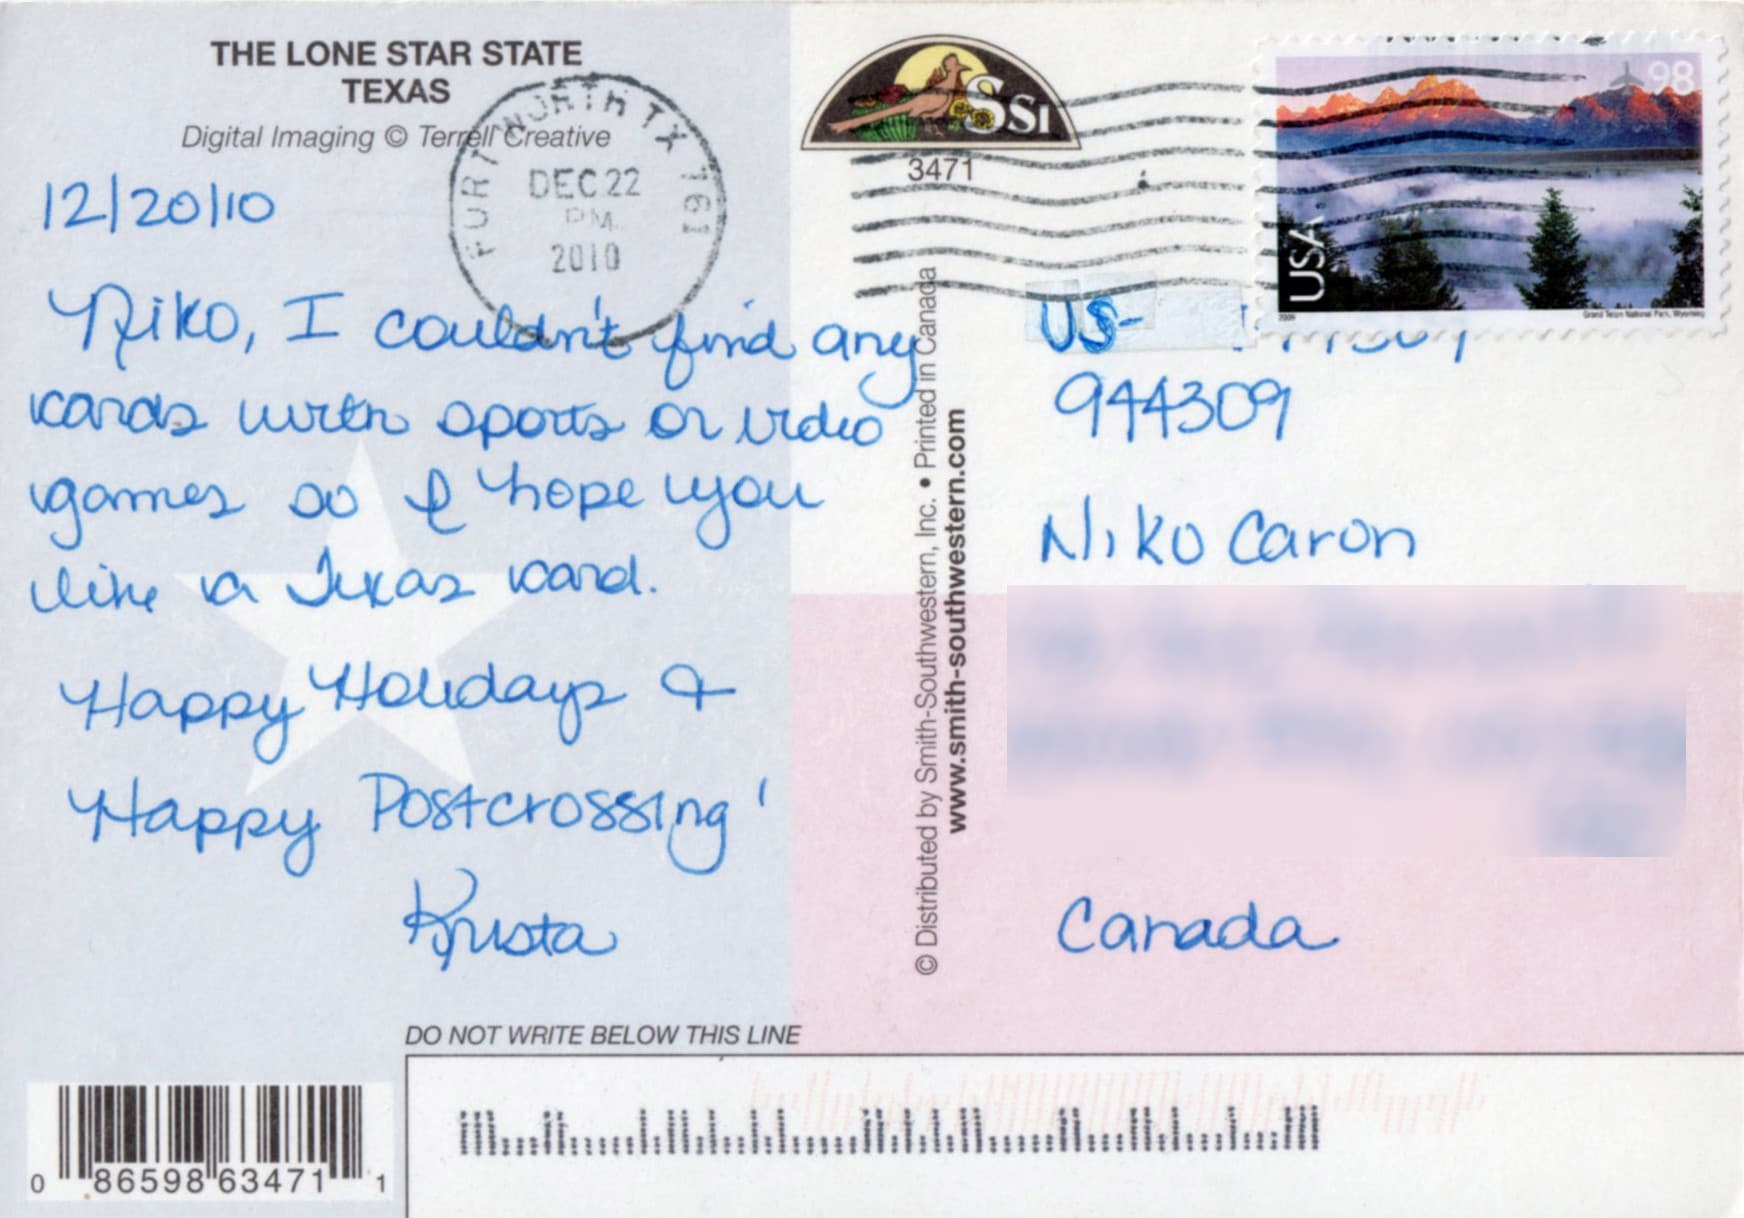 THE LONE STAR STATE
TEXAS
Digital Imaging © Terrell Creative
FORT WORTH TX 761
DEC 22
PM
2010
12/20/10
Niko, I couldn't find any
cards with sports or video
games so I hope you
like a Texas card.
Happy Holidays &
Happy Postcrossing!
Krista
SSI
3471
© Distributed by Smith-Southwestern, Inc. • Printed in Canada
www.smith-southwestern.com
98
USA
2009
Grand Teton National Park, Wyoming
US-
944309
Niko Caron
Canada
DO NOT WRITE BELOW THIS LINE
0 86598 63471 1